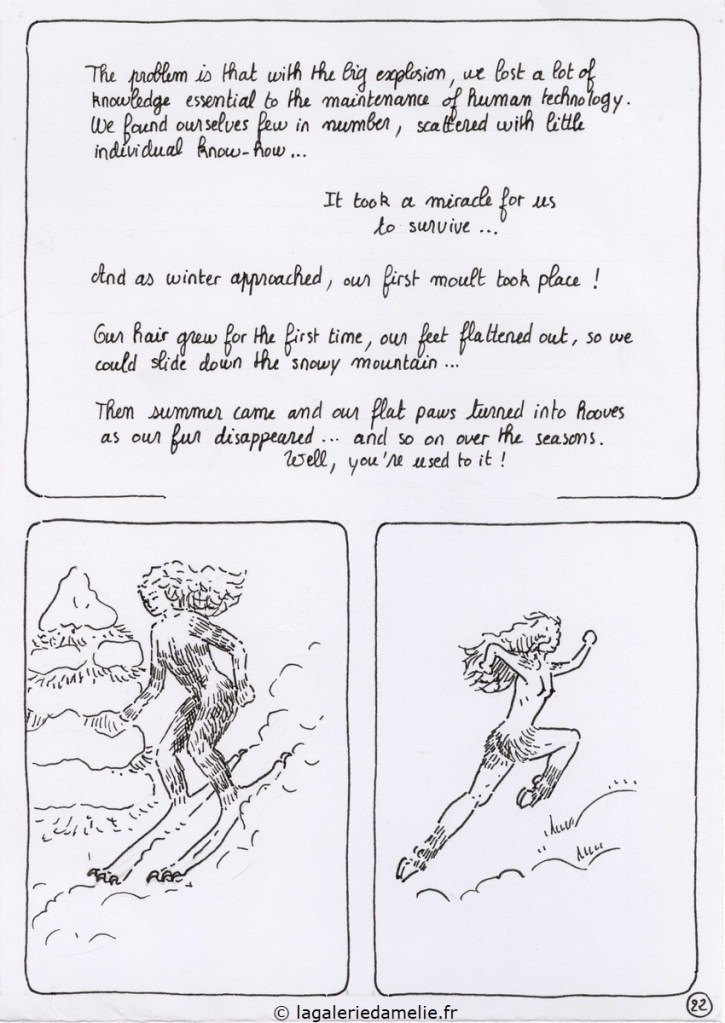 The problem is that with the big explosion, we lost a lot of
knowledge essential to the maintenance of human technology.
We found ourselves few in number, scattered with little
individual know-how...
It took a miracle for us
to survive...
And as winter approached, our first moult took place !
Our hair grew for the first time, our feet flattened out, so we
could slide down the snowy mountain...
Then summer came and our flat paws turned into hooves
as our fur disappeared... and so on over the seasons.
Well, you're used to it !
22
© lagaleriedamelie.fr